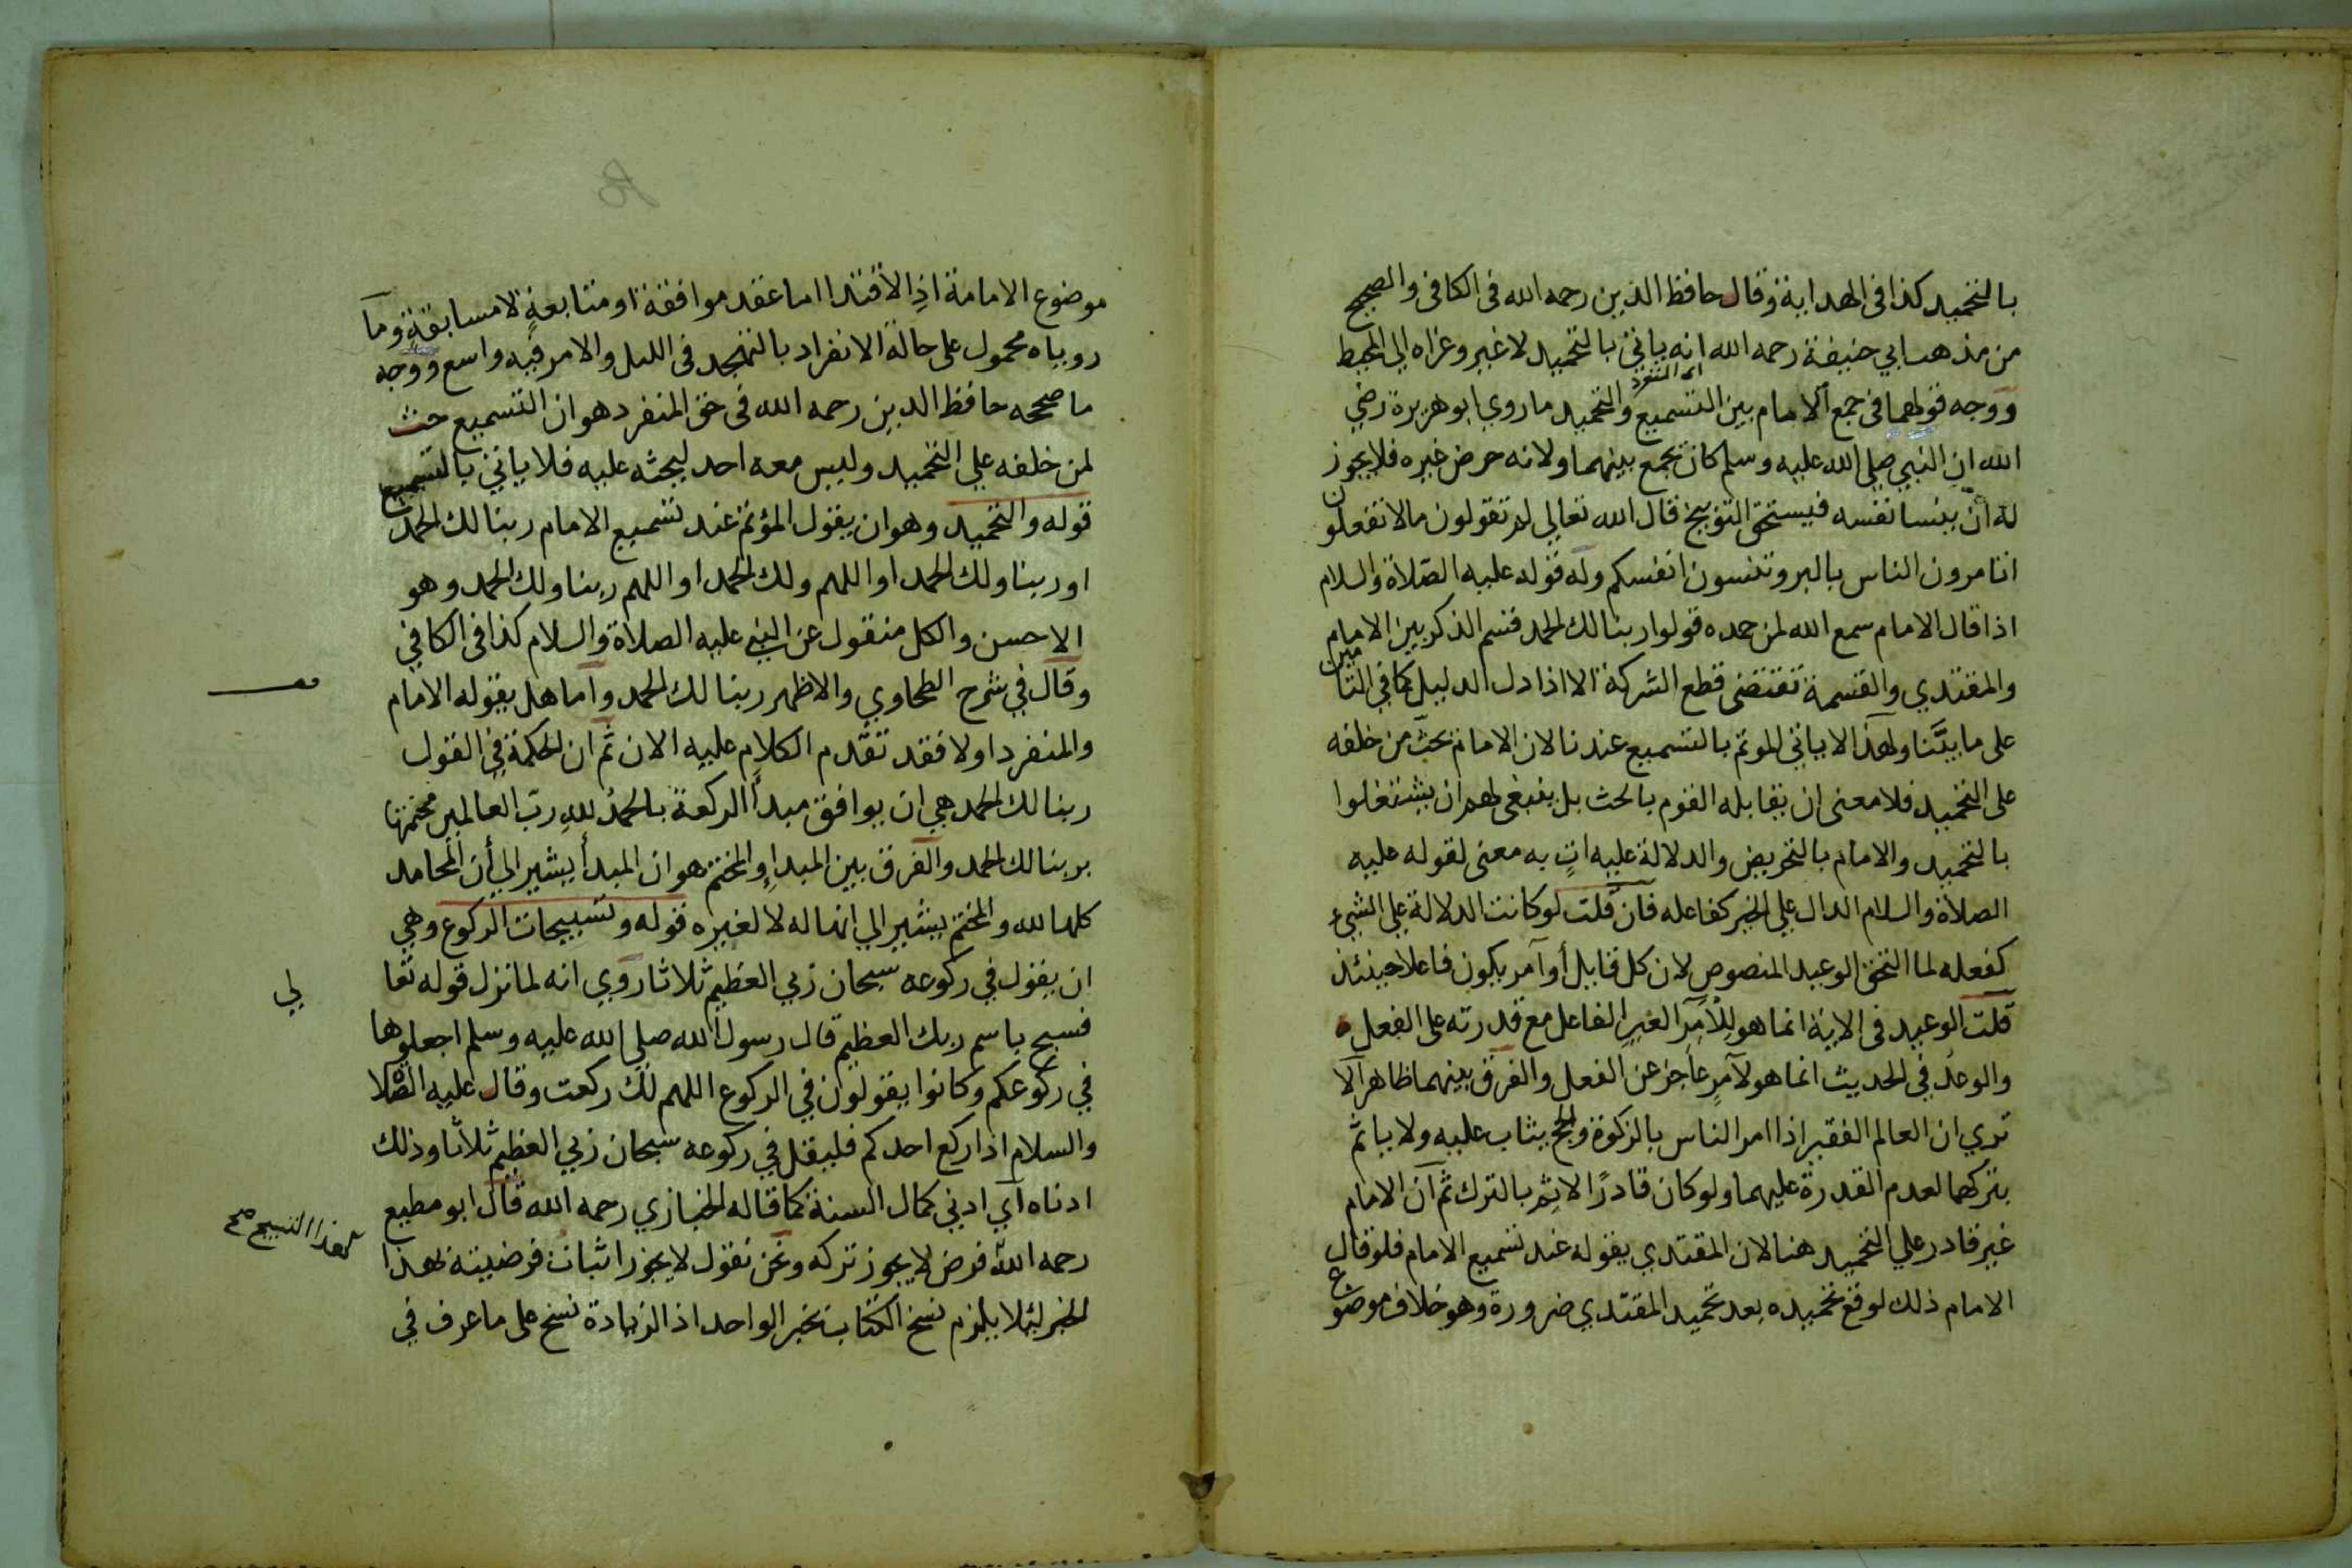 بالتحميد كذا في الهداية وقال حافظ الدين رحمه الله في الكافي والصحيح
من مذهب ابي حنيفة رحمه الله انه ياتي بالتحميد لا غير وعزاه الي المحيط
ووجه قولهما في جمع الامام بين التسميع والتحميد ما روي ابو هريرة رضي
الله ان النبي صلي الله عليه وسلم كان يجمع بينهما ولانه حرض غيره فلا يجوز
له ان ينسا نفسه فيستحق التوبيخ قال الله تعالي لم تقولون مالا تفعلون
اتامرون الناس بالبر وتنسون انفسكم وله قوله عليه الصلاة والسلام
اذا قال الامام سمع الله لمن حمده قولوا ربنا لك الحمد قسم الذكر بين الامام
والمقتدي والقسمة تقتضى قطع الشركة الا اذا دل الدليل كما في التامين
على ما بيَّنا ولهذا لا ياتي الموتم بالتسميع عندنا لان الامام يحثّ من خلفه
على التحميد فلا معنى ان يقابله القوم بالحث بل ينبغى لهم ان يشتغلوا
بالتحميد والامام بالتحريض والدلالة عليه اتٍ به معنى لقوله عليه
الصلاة والسلام الدال علي الخير كفاعله فان قلت لو كانت الدلالة علي الشيء
كفعله لما التحق الوعيد المنصوص لان كل قايل أو آمر يكون فاعلا حينئذ
قلت الوعيد في الاية انما هو للآمرِ الغيرِ الفاعل مع قدرته على الفعل
والوعدُ في الحديث انما هو لآمرٍ عاجز عن الفعل والفرق بينهما ظاهر الا
تري ان العالم الفقير اذا امر الناس بالزكوة والحج يثاب عليه ولا ياثم
بتركهما لعدم القدرة عليهما ولو كان قادرًا لاثم بالترك ثم ان الامام
غير قادر علي التحميد هنا لان المقتدي يقوله عند تسميع الامام فلو قال
الامام ذلك لوقع تحميده بعد تحميد المقتدي ضرورة وهو خلاف موضوع
موضوع الامامة اذِ الاقتدا اما عقد موافقة او متابعةٍ لا مسابقةٍ وما
روياه محمول على حالة الانفراد بالتهجد في الليل والامر فيه واسع ووجه
ما صححه حافظ الدين رحمه الله في حق المنفرد هو ان التسميع حث
لمن خلفه علي التحميد وليس معه احد ليحثه عليه فلا ياتي بالتسميع
قوله والتحميد وهو ان يقول المؤتم عند تسميع الامام ربنا لك الحمد
او ربنا ولك الحمد او اللهم ولك الحمد او اللهم ربنا ولك الحمد وهو
الاحسن والكل منقول عن النبي عليه الصلاة والسلام كذا في الكافي
وقال في شرح الطحاوي والاظهر ربنا لك الحمد واما هل يقوله الامام
والمنفرد اولا فقد تقدم الكلام عليه الان ثم ان الحكمة في القول
ربنا لك الحمد هي ان يوافق مبدأ الركعة بالحمدُ للهِ ربّ العالمين مختمها
بربنا لك الحمد والفرق بين المبدإ والمختم هو ان المبدأ يشير الي أن المحامد
كلها لله والمختم يشير الي انها له لا لغيره قوله وتسبيحات الركوع وهي
ان يقول في ركوعه سبحان ربي العظيم ثلاثا روي انه لما نزل قوله تعا
لي
فسبح باسم ربك العظيم قال رسول الله صلي الله عليه وسلم اجعلوها
في ركوعكم وكانوا يقولون في الركوع اللهم لك ركعت وقال عليه الصلاة
والسلام اذا ركع احدكم فليقل في ركوعه سبحان ربي العظيم ثلاثا وذلك
ادناه اي ادني كمال السنة كما قاله الخبازي رحمه الله قال ابو مطيع
لهذا التسبيح صح
رحمه الله فرض لا يجوز تركه ونحن نقول لا يجوز اثبات فرضيته بهذا
الخبر لئلا يلزم نسخ الكتاب بخبر الواحد اذ الزيادة نسخ على ما عرف في